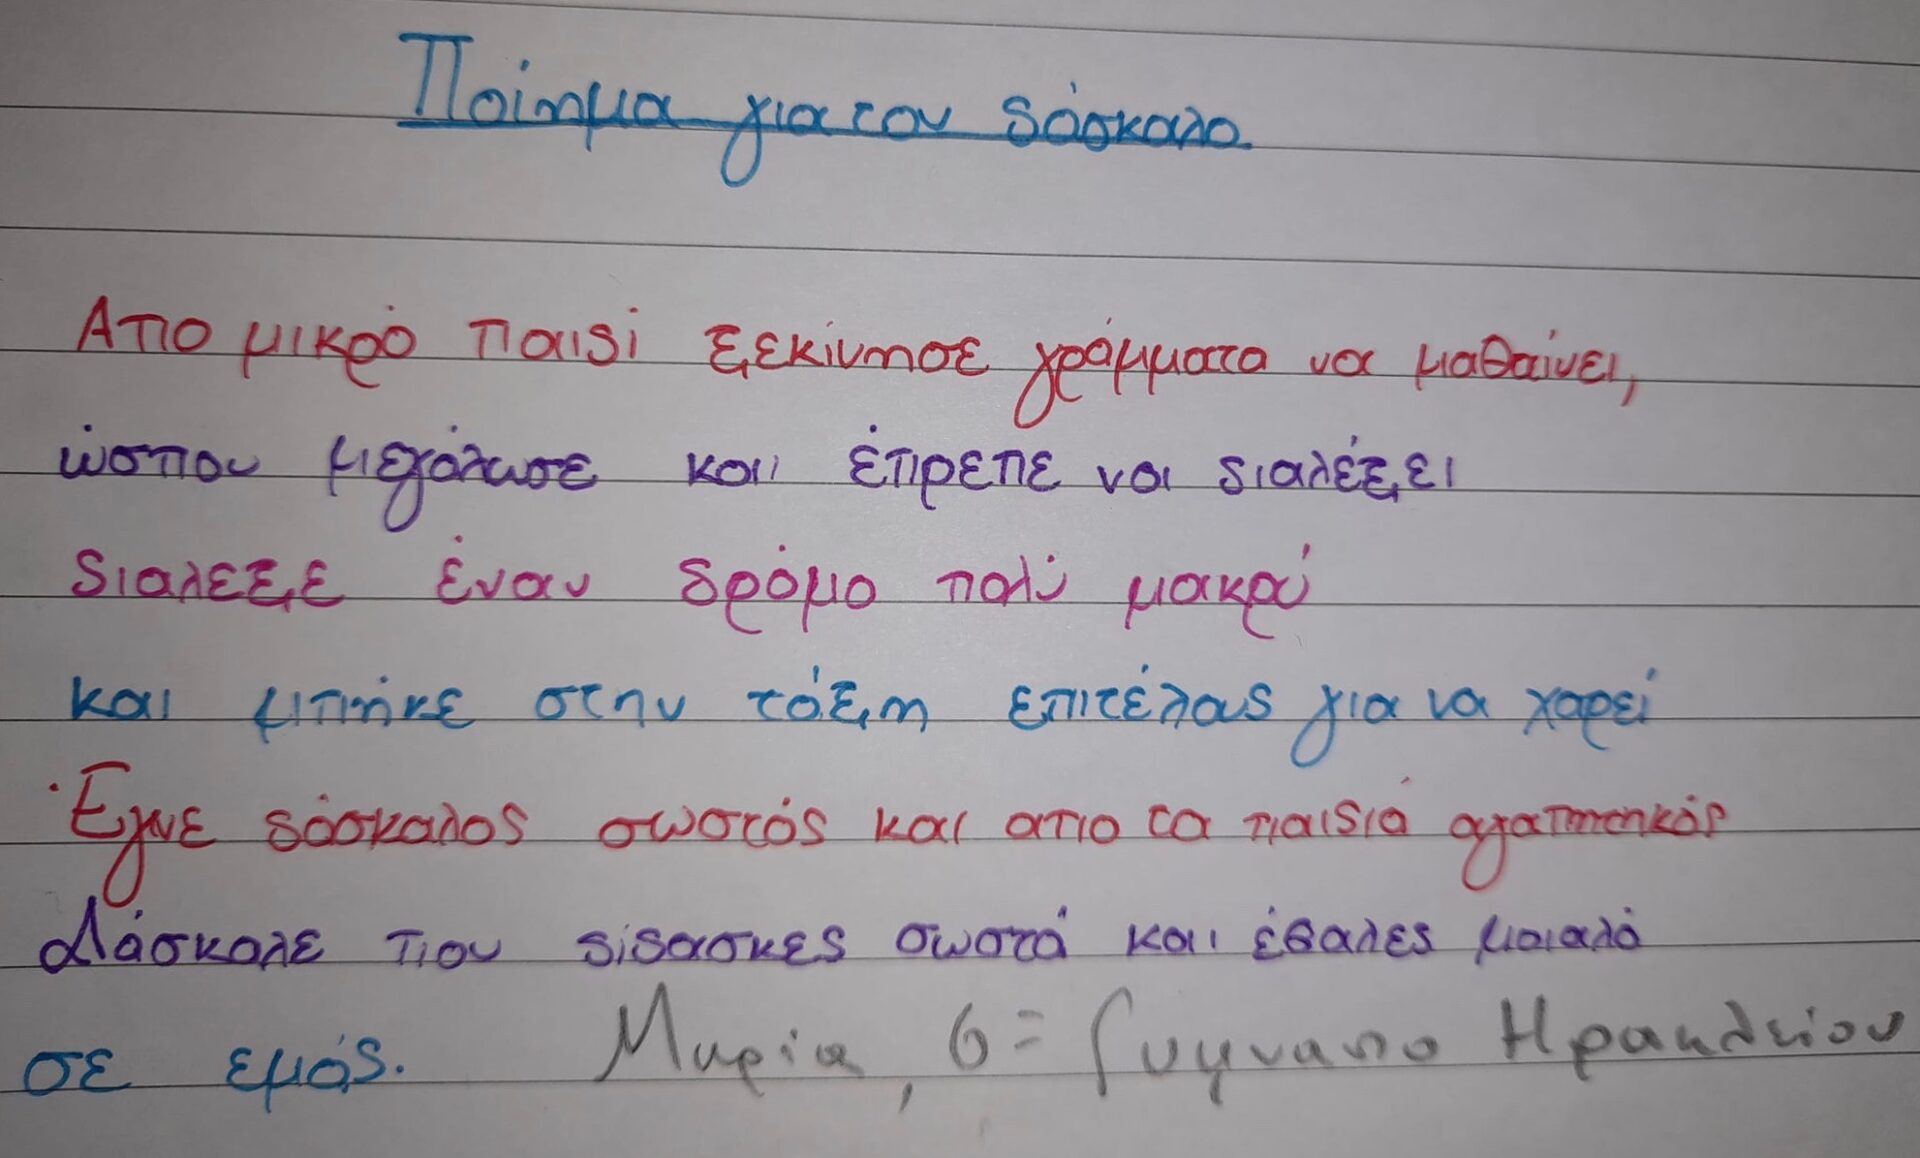 Ποίημα για τον δάσκαλο
Απο μικρό παιδί ξεκίνησε γράμματα να μαθαίνει,
ώσπου μεγάλωσε και έπρεπε να διαλέξει
διαλεξε έναν δρόμο πολύ μακρύ
και μπήκε στην τάξη επιτέλους για να χαρεί
Έγινε δάσκαλος σωστός και απο τα παιδιά αγαπητικός
Δάσκαλε που δίδασκες σωστά και έβαλες μυαλό
σε εμάς. Μυρία, 6= Γυμνασιο Ηρακλείου